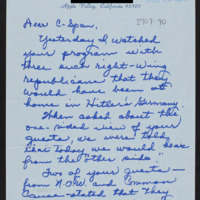 Apple Valley, California 92307
2907-90
Dear C-Span,
Yesterday I watched
your program with
three such right-wing
republicans that they
would have been at
home in Hitler's Germany.
When asked about the
one-sided view of your
guests, we were told
that today we would hear
from the "other side."
Two of your guests —
from N.O.W. and Common
Cause - stated that they